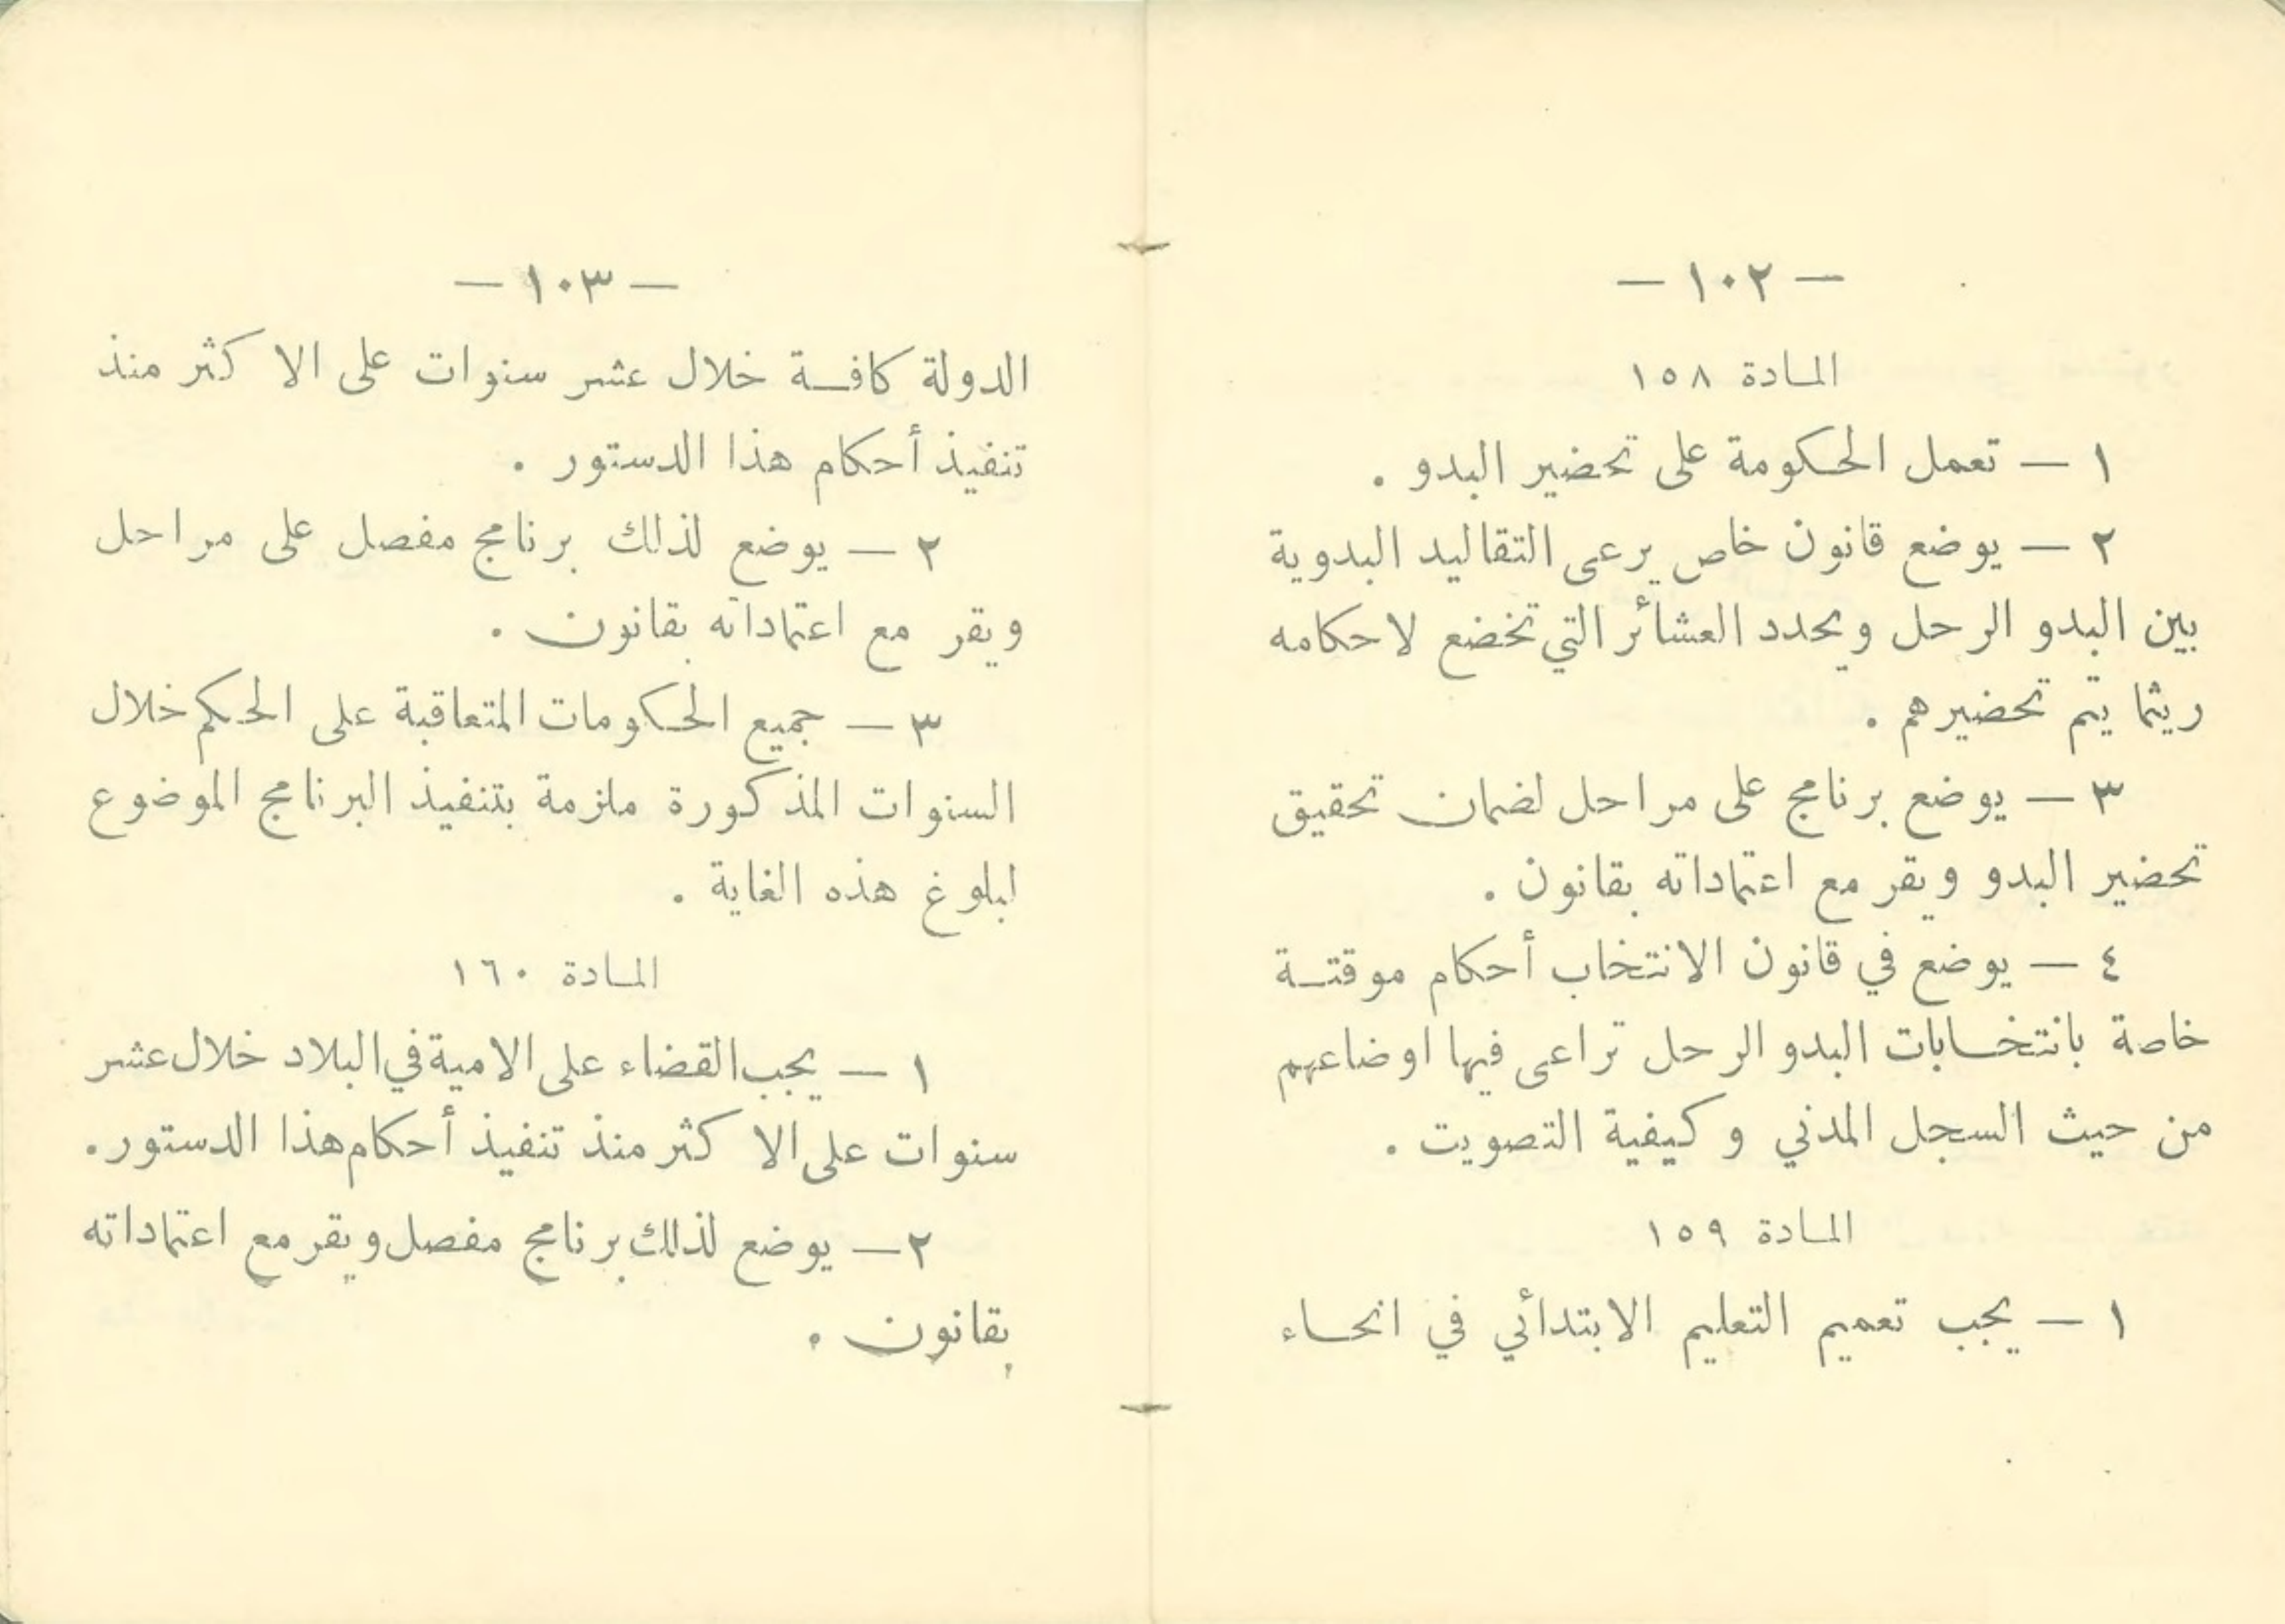 — ١٠٢ —
المادة ١٥٨
١ — تعمل الحكومة على تحضير البدو .
٢ — يوضع قانون خاص يرعى التقاليد البدوية
بين البدو الرحل ويحدد العشائر التي تخضع لاحكامه
ريثما يتم تحضيرهم .
٣ — يوضع برنامج على مراحل لضمان تحقيق
تحضير البدو ويقر مع اعتماداته بقانون .
٤ — يوضع في قانون الانتخاب أحكام موقتة
خاصة بانتخابات البدو الرحل تراعى فيها اوضاعهم
من حيث السجل المدني وكيفية التصويت .
المادة ١٥٩
١ — يجب تعميم التعليم الابتدائي في انحاء
— ١٠٣ —
الدولة كافة خلال عشر سنوات على الاكثر منذ
تنفيذ أحكام هذا الدستور .
٢ — يوضع لذلك برنامج مفصل على مراحل
ويقر مع اعتماداته بقانون .
٣ — جميع الحكومات المتعاقبة على الحكم خلال
السنوات المذكورة ملزمة بتنفيذ البرنامج الموضوع
لبلوغ هذه الغاية .
المادة ١٦٠
١ — يجب القضاء على الامية في البلاد خلال عشر
سنوات على الاكثر منذ تنفيذ أحكام هذا الدستور .
٢ — يوضع لذلك برنامج مفصل ويقر مع اعتماداته
بقانون .